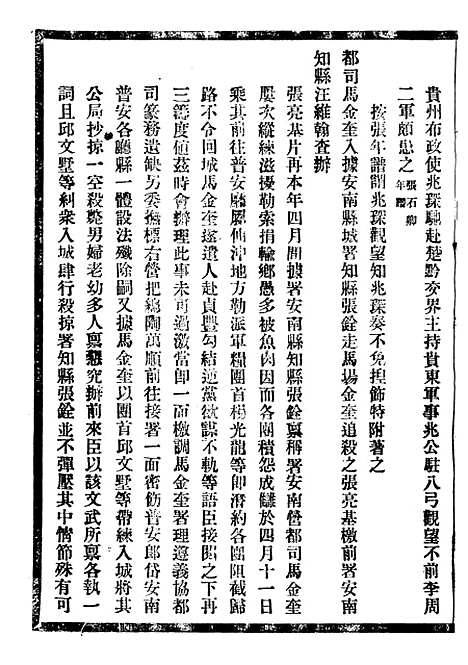 貴州布政使兆琛馳赴楚黔交界主持貴東軍事兆公駐八弓觀望不前李周
二軍頗患之張石卿年譜
按張年譜謂兆琛觀望知兆琛奏不免揑飾特附著之
都司馬金奎入據安南縣城署知縣張銓走馬揚金奎追殺之張亮基檄前署安南
知縣汪維翰查辦
張亮基片再本年四月間據署安南縣知縣張銓稟稱署安南營都司馬金奎
屢次縱練滋擾勒索捐輸鄉愚多被魚肉因而各團積怨成讎於四月十一日
乘其前往普安廳屬仙沖地方勒派軍糧團首楊光龍等卽潛約各團阻截歸
路不令回城馬金奎遂遣人赴貞豐勾結逆黨欲謀不軌等語臣接閱之下再
三籌度値茲時會辦理此事未可過激當卽一面檄調馬金奎署理遵義協都
司篆務遺缺另委撫標右營把總陶萬順前往接署一面密飭普安郞岱安南
普安各廳縣一體設法殲除嗣又據馬金奎以團首邱文墅等帶練入城將其
公局抄掠一空殺斃男婦老幼多人稟懇究辦前來臣以該文武所稟各執一
詞且邱文墅等糾衆入城肆行殺掠署知縣張銓並不彈壓其中情節殊有可